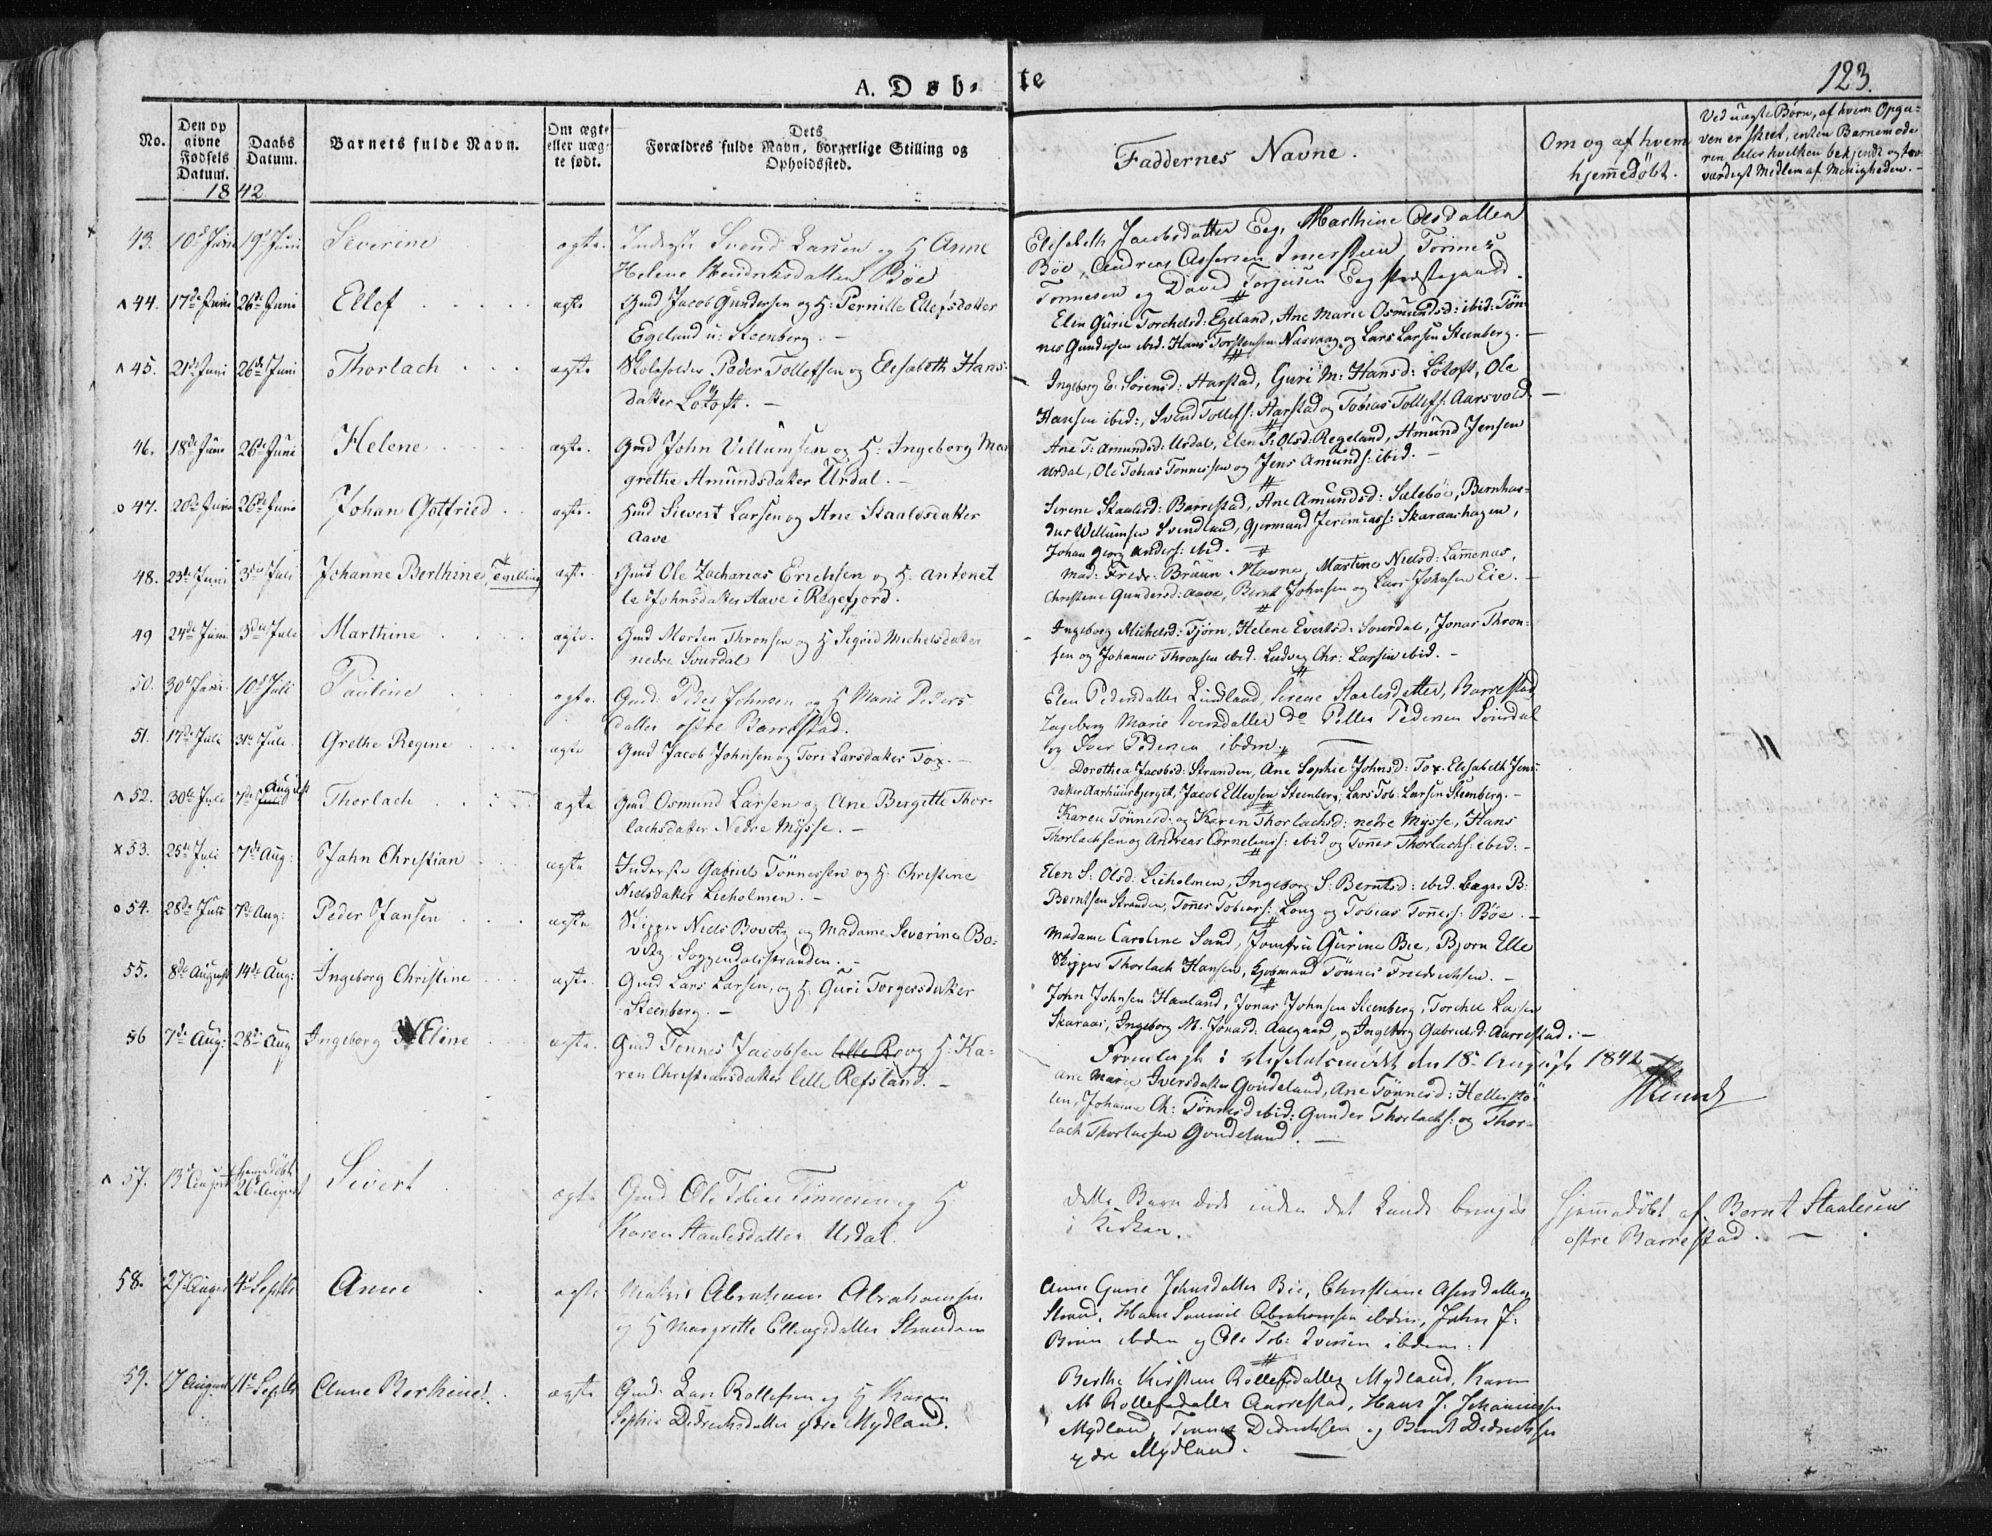 A. Døbte
123.
No.
Den opgivne Fødsels Datum.
Daabs Datum.
Barnets fulde Navn.
Om ægte eller uægte født.
Forældres fulde Navn, borgerlige Stilling og Opholdssted.
Faddernes Navne.
Om og af hvem hjemedöbt.
Ved uægte Børn, af hvem Opgaven er skeet, enten Barnemoderen eller hvilken bekjendt og troværdigt Medlem af Menigheden.
1842
43. 10d Juni 19d Juni Severine ægte. Inderste Svend Larsen og H Anne
Helene Hendriksdatter Böe
Elisabeth Jacobsdatter Eeg, Marthine Olsdatter
Böe, Andreas Assersen Tönnes
Tönnesen og David Torjusen Eeg Præstegaard.
44. 17de Juni 26de Juni Ellef ægte Gmd Jacob Gundersen og H: Pernille Ellefsdatter
Egeland u: Steenberg.
Elen Gurie Torchelsd: Egeland, Ane Marie Osmundsd: ibid: Tön-
nes Gundersen ibid. Hans Torstensen Nasvaag og Lars Larsen Steenberg.
45. 21de Juni 26de Juni Thorlach ægte Skoleholder Peder Tollefsen og Elisabeth Hans-
datter Lötoft.
Ingeborg E. Sörensd: Harstad, Guri M: Hansd: Lötoft, Ole
Hansen ibid:, Svend Tollefs: Harstad og Tobias Tollefs: Aarsvold.
46. 18de Juni 26de Juni Helene ægte. Gmd John Villumsen og H: Ingeborg Mar
grethe Amundsdatter Urdal.
Ane T: Amundsd: Urdal, Elen S: Olsd: Regeland, Amund Jensen
Urdal, Ole Tobias Tönnessen og Jens Amunds: ibid.
47. 20de Juni 26de Juni Johan Gotfried ægte. Hmd Sivert Larsen og Ane Staalesdatter
Aave
Serene Staalesd: Barrestad, Ane Amundsd: Saleböe, Bernhar-
dus Wellumsen Svendland, Gjermund Jeremiass: Skaraashagen,
Johan Georg Anders: ibid.
48. 23de Juni 3die Juli Johanne Berthine, Tvilling ægte. Gmd Ole Zacharias Erichsen og H: Antonet
te Johnsdatter Aave i Rægefjord.
Mad: Fredr: Bruun Havne, Martine Nielsd: Lamenas,
Christene Gundersd: Aave, Bernt Johnsen og Lars Johnsen Eie.
49 24de Juni 3die Juli Marthine ægte. Gmd Morten Thronsen og H Segrid Michelsdatter
nedre Sourdal
Ingeborg Michelsd: Tjörn, Helene Evertsd: Sourdal, Jonas Thron-
sen og Johannes Thronsen ibid. Ludvig Chr: Larsen ibid.
50. 30d Juni 10d Juli Pauline ægte. Gmd: Peder Johnsen og H Marie Peders
datter östre Barrestad.
Elen Pedersdatter Lindland, Serene Staalesdatter, Barrestad
Ingeborg Marie Iversdatter do Peder Pedersen Sourdal
og Iver Pedersen ibdem.
51. 17de Juli 31te Juli. Grethe Regine ægte Gmd Jacob Johnsen og Tori Larsdatter Tox.
Dorothea Jacobsd: Stranden, Ane Sophie Johnsd: Tox. Elisabeth Jens-
datter Aarhuusbjerget, Jacob Ellevsen Steenberg, Lars Tob: Larsen Steenberg.
52. 30te Juli 7de August Thorlach ægte Gmd Osmund Larsen og Ane Bergitte Thor-
lachsdatter Nedre Mysse.
Karen Tönnesd: og Karen Thorlachsd: nedre Mysse, Hans
Thorlachsen og Andreas Corneliuss: ibid og Tönnes Thorlachs: ibid:
53. 25de Juli 7de Aug: John Christian ægte Inderste Gabriel Tönnessen og H: Christine
Nielsdatter Lieholmen.
Elen S: Olsd: Lieholmen, Ingeborg S: Berntsd: ibid. Lægs: B:
Berntsen Stranden, Tönes Tobiass: Long og Tobias Tönness: Böe.
54. 28de Juli 7de Aug: Peder Jansen ægte Skipper Niels Bovitz og Madame Severine Bo-
vitz. Soggendalsstranden.
Madame Caroline Sand, Jomfru Gurine Bie, Bjorn Elle
Skipper Thorlach Hansen, Kjøbmand Tönnes Friedrichsen.
55. 8de August 14de Aug: Ingeborg Christine ægte. Gmd Lars Larsen, og H: Guri Torgersdatter
Steenberg.
John Johnsen Haaland, Jonas Johnsen Steenberg, Torchel Lassen
Skaraas, Ingeborg M. Jonasd: Aasgaard, og Ingeborg Gabrielsd: Aarrestad.
Fremlagt i den 18 August 1842
56 7de Aug: 28de Aug Ingeborg Eline ægte. Gmd Tönnes Jacobsen lille R og H: Ka-
ren Christiansdatter lille Refsland.
Ane Marie Iversdatter Goudeland, Ane Tönnesd: Hellestö-
len, Johanne Ch: Tönnesd ibid: Gunder Thorlachs: og Thor-
lach Thorlacsen Goudeland.
57. 13d August hjemedöbt 20d August Sivert ægte Gmd Ole Tobias Tönnesen og H
Karen Staalesdatter Urdal.
Dette Barn döde inden det kunde bringes
i Kirken.
Hjemmedöbt af Bernt Staalesen
östre Barrestad.
58. 27d August 4d Septbr Anne ægte Matros Abraham Abrahamsen
og H Margrethe Ellingsdatter Stranden
Anne Gurie Johnsdatter Bie, Christiane Asersdatter
Strand, Hans Samuel Abrahamsen ibdem, John J.
Bruun ibdem og Ole Tob: Iversen ibdem.
59. 17 August 11te Septbr Anne Berthine. ægte Gmd: Lars Rollefsen og H Karen
Sophie Didrichsdatter ydre Mydland.
Berthe Kirstine Rollefsdatter Mydland, Karen
M Rollefsdatter Aarrestad, Hans J. Johannesen
Mydland, Tönnes Didrichsen og Bernt Didrichsen
ydre Mydland.